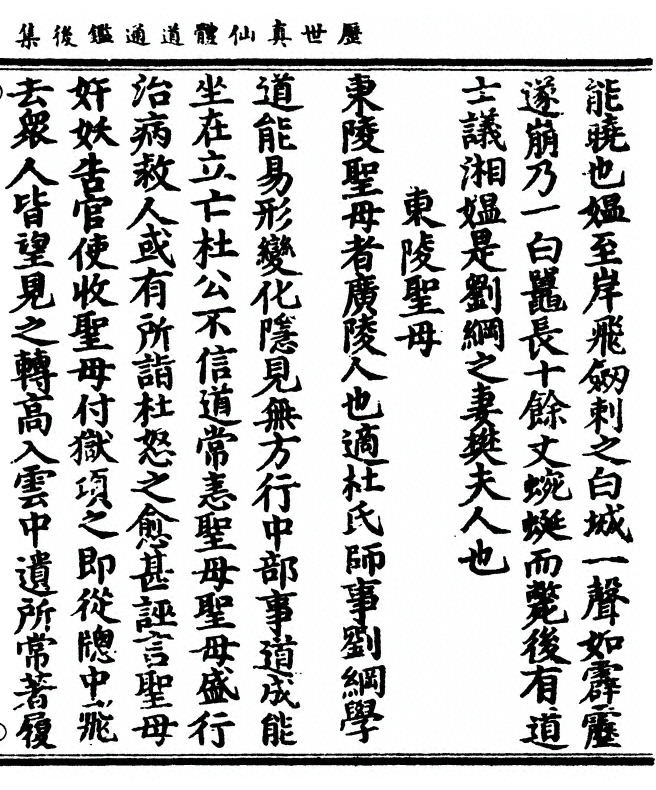 歷世真仙體道通鑑後集
能曉也媪至岸飛劒刺之白城一聲如霹靂
遂崩乃一白鼉長十餘丈蜿蜒而斃後有道
士議湘媪是劉綱之妻樊夫人也
東陵聖母
東陵聖母者廣陵人也適杜氏師事劉綱學
道能易形變化隱見無方行中部事道成能
坐在立亡杜公不信道常恚聖母聖母盛行
治病救人或有所詣杜怒之愈甚誣言聖母
奸妖告官使收聖母付獄項之即從牕中飛
去衆人皆望見之轉高入雲中遺所常著履